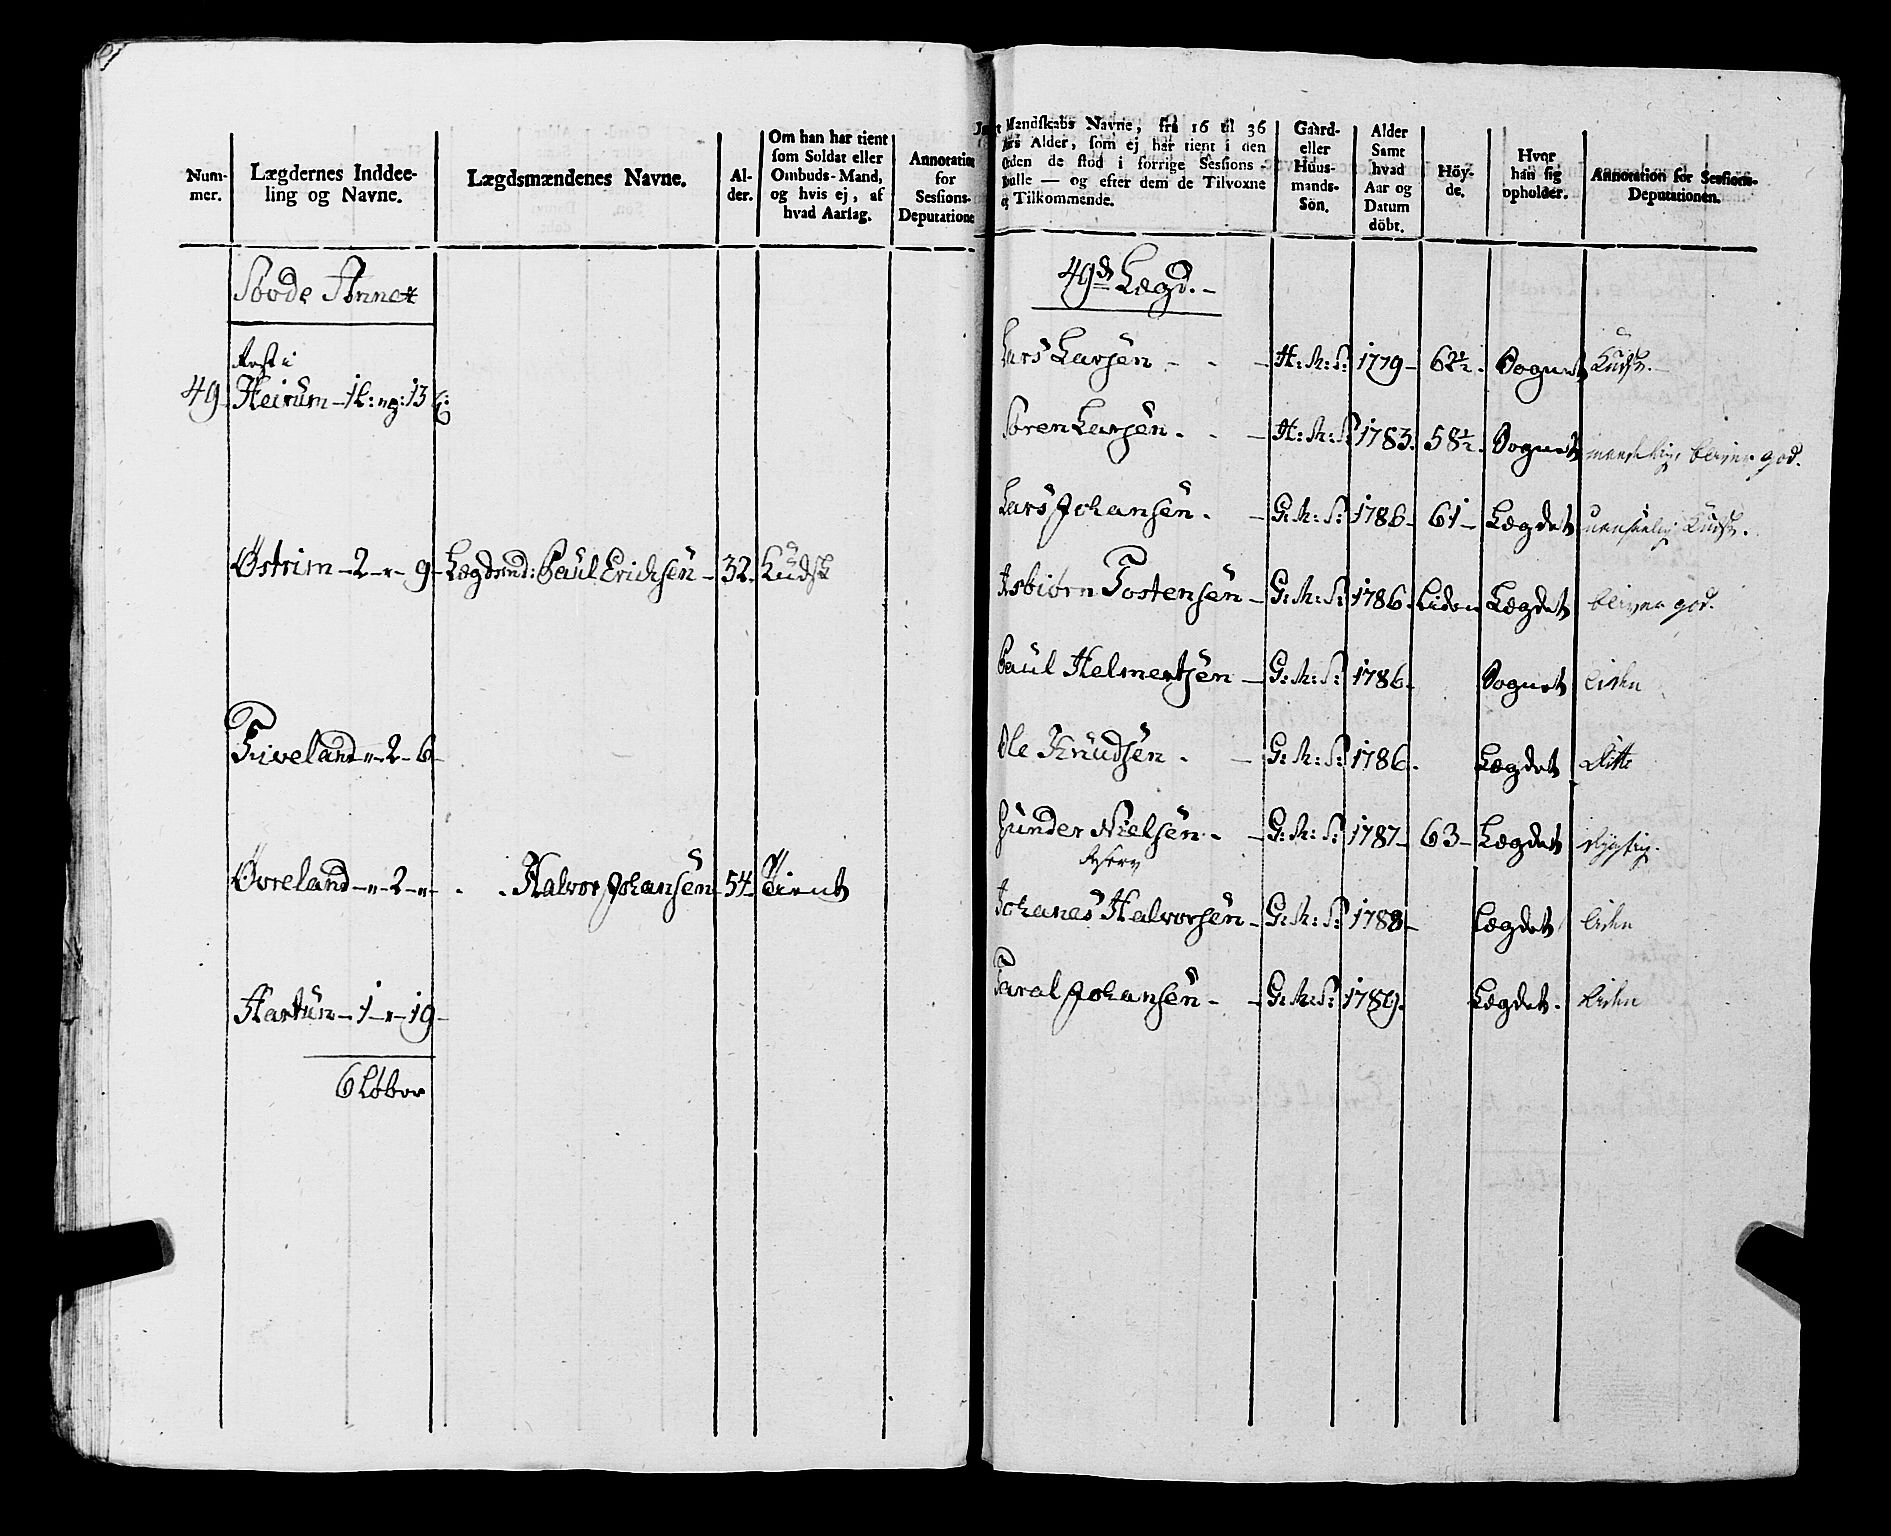 Num-
mer.
Lægdernes Inddee-
ling og Navne.
Lægdsmændenes Navne.
Al-
der.
Om han har tient
som Soldat eller
Ombuds-Mand,
og hvis ej, af
hvad Aarsag.
Annotation
for
Sessions-
Deputatione
Søvde Annex
Rest i
49 Heirum - 1 L: ng: 13
Østrim - 2 - " - 9 - Lægdsmd: Paul Erichsen - 32 - Kudsk
Tiveland - " - 2 - 6 -
Øvreland - " - 2 - " - Halvor Johansen 54 - Tient
Hartun - 1 - " - 19 -
6 Løber
Mandskabs Navne, fra 16 til 36
Alder, som ej har tient i den
Orden de stod i forrige Sessions
Rulle — og efter dem de Tilvoxne
og Tilkommende.
Gaard-
eller
Huus-
mands-
Sön.
Alder
Samt
hvad
Aar og
Datum
döbt.
Höy-
de.
Hvor
han sig
opholder.
Annotation for Sessions-
Deputationen.
49de Lægd. -
Lars Larsen - - - H: M: S: 1779 - 62½ - Sognet Kudsk. -
Søren Larsen - - - H: M: S: 1783. 58½ - Sognet bliver god.
Lars Johansen - - G: M: S: 1786 - 61 - Lægdet Kudsk.
Asbiørn Tostensen - G: M: S: 1786. Liden Lægdet bliver god.
Paul Helmertsen - G: M: S: 1786. Sognet Liden
Ole Knudsen - - G: M: S: 1786. Lægdet Ditto
Gunder Nielsen - - G: M: S: 1787 - 63 - Lægdet dygtig.
Reserv
Johanes Halvorsen - G: M: S: 1788 - Lægdet Liden
Taral Johansen - - G: M: S: 1789. Lægdet. Liden